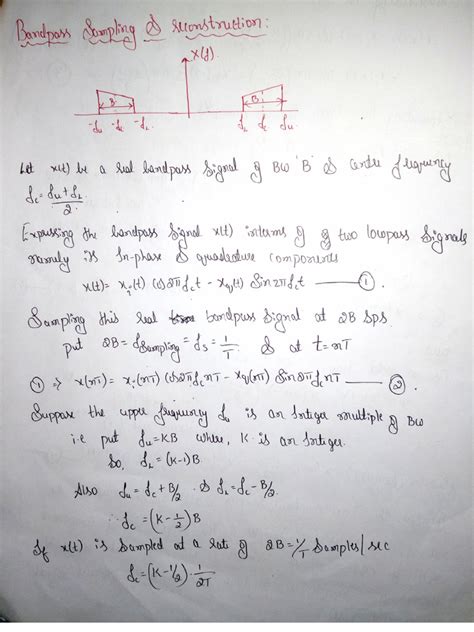 Bandpass Sampling & reconstruction:
X(f).
B B
-fu -fc -fL fL fc fu
Let x(t) be a real bandpass signal of BW 'B' & centre frequency
fc = fu + fL / 2.
Expressing the bandpass signal x(t) interms of two lowpass signals
namely is In-phase & quadrature components
x(t) = xi(t) cos2πfct - xq(t) Sin2πfct — ①.
Sampling this real bandpass signal at 2B sps.
put 2B = fsampling = fs = 1/T & at t = nT
① ⇒ x(nT) = xi(nT) cos2πfcnT - xq(nT) Sin2πfcnT — ②.
Suppose the upper frequency fu is an Integer multiple of BW
i.e put fu = KB where, K is an Integer.
So, fL = (K-1)B.
Also fu = fc + B/2 . & fL = fc - B/2.
∴ fc = (K - 1/2) B
If x(t) is Sampled at a rate of 2B = 1/T Samples/sec
fc = (K - 1/2) . 1/2T